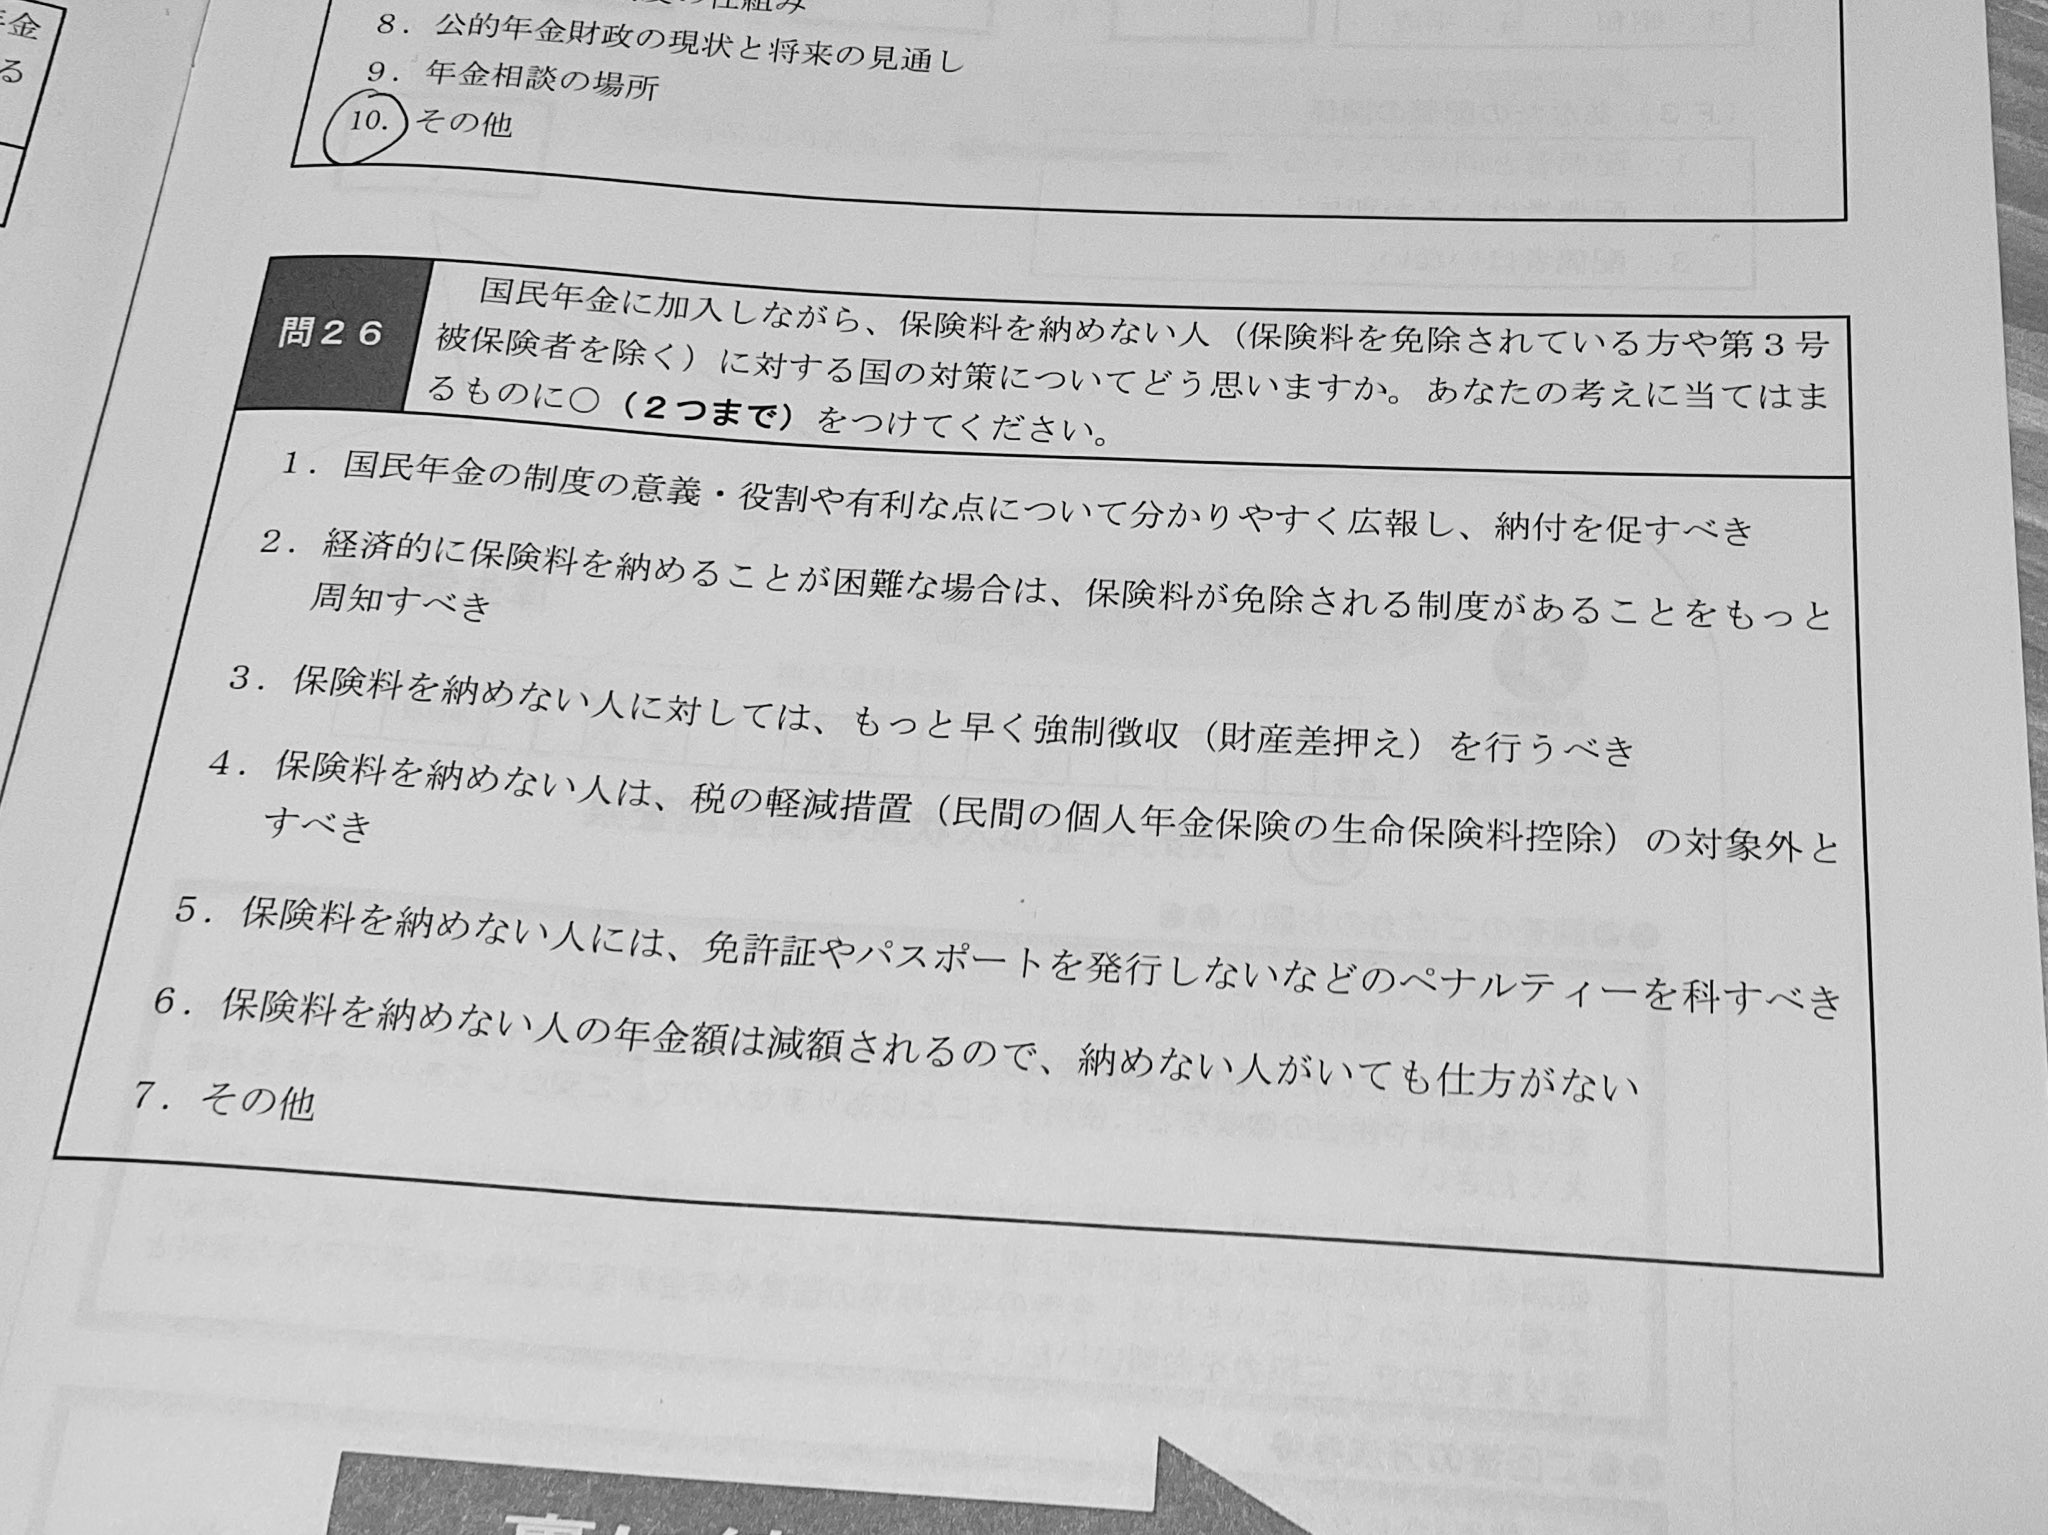 年金
る
の仕組み
8．公的年金財政の現状と将来の見通し
9．年金相談の場所
10．その他
問26
国民年金に加入しながら、保険料を納めない人（保険料を免除されている方や第3号
被保険者を除く）に対する国の対策についてどう思いますか。あなたの考えに当てはま
るものに○（2つまで）をつけてください。
1．国民年金の制度の意義・役割や有利な点について分かりやすく広報し、納付を促すべき
2．経済的に保険料を納めることが困難な場合は、保険料が免除される制度があることをもっと
周知すべき
3．保険料を納めない人に対しては、もっと早く強制徴収（財産差押え）を行うべき
4．保険料を納めない人は、税の軽減措置（民間の個人年金保険の生命保険料控除）の対象外と
すべき
5．保険料を納めない人には、免許証やパスポートを発行しないなどのペナルティーを科すべき
6．保険料を納めない人の年金額は減額されるので、納めない人がいても仕方がない
7．その他